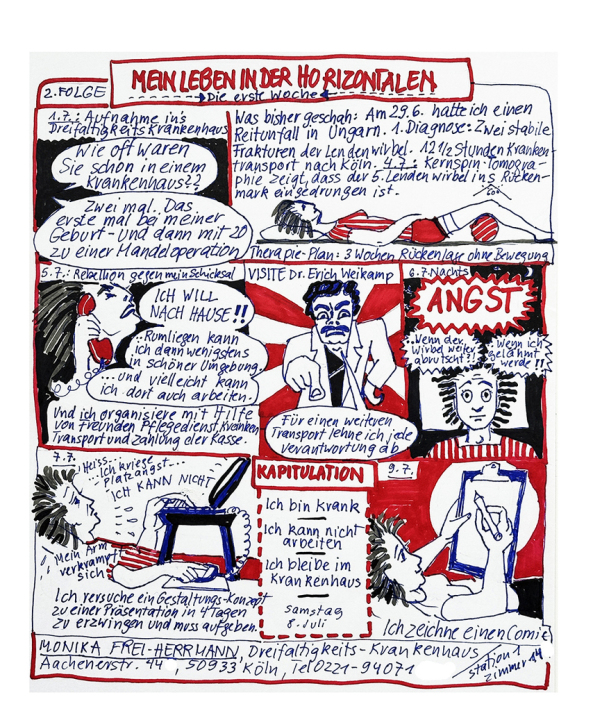 2. FOLGE
MEIN LEBEN IN DER HORIZONTALEN
Die erste Woche
1.7.: Aufnahme in's
Dreifaltigkeits Krankenhaus
Wie oft waren
Sie schon in einem
Krankenhaus??
Zwei mal. Das
erste mal bei meiner
Geburt - und dann mit 20
zu einer Mandeloperation
Was bisher geschah: Am 29.6. hatte ich einen
Reitunfall in Ungarn. 1. Diagnose: Zwei stabile
Frakturen der Lendenwirbel. 12 1/2 Stunden Kranken-
transport nach Köln. 4.7.: Kernspin-Tomogra-
phie zeigt, dass der 5. Lendenwirbel in's Rücken-
mark eingedrungen ist.
Therapie-Plan: 3 Wochen Rückenlage ohne Bewegung
5.7.: Rebellion gegen mein Schicksal
ICH WILL
NACH HAUSE!!
..Rumliegen kann
ich dann wenigstens
in schöner Umgebung.
...und vielleicht kann
ich dort auch arbeiten.
Und ich organisiere mit Hilfe
von Freunden Pflegedienst, Kranken-
Transport und Zahlung der Kasse.
VISITE Dr. Erich Weikamp
Für einen weiteren
Transport lehne ich jede
Verantwortung ab
6.7. Nachts
ANGST
Wenn der
Wirbel weiter
abrutscht?!
Wenn ich
gelähmt
werde!!
7.7.
Heiss...
...Ich kriege
Platzangst...
ICH KANN NICHT
Mein Arm
verkrampft
sich
Ich versuche ein Gestaltungs-Konzept
zu einer Präsentation in 4 Tagen
zu erzwingen und muss aufgeben.
KAPITULATION
Ich bin krank
Ich kann nicht
arbeiten
Ich bleibe im
Krankenhaus
Samstag
8. Juli
9.7.
Ich zeichne einen Comic
MONIKA FREI-HERRMANN, Dreifaltigkeits-Krankenhaus
Aachenerstr. 44, 50933 Köln, Tel 0221-94071
Station 1
Zimmer 14